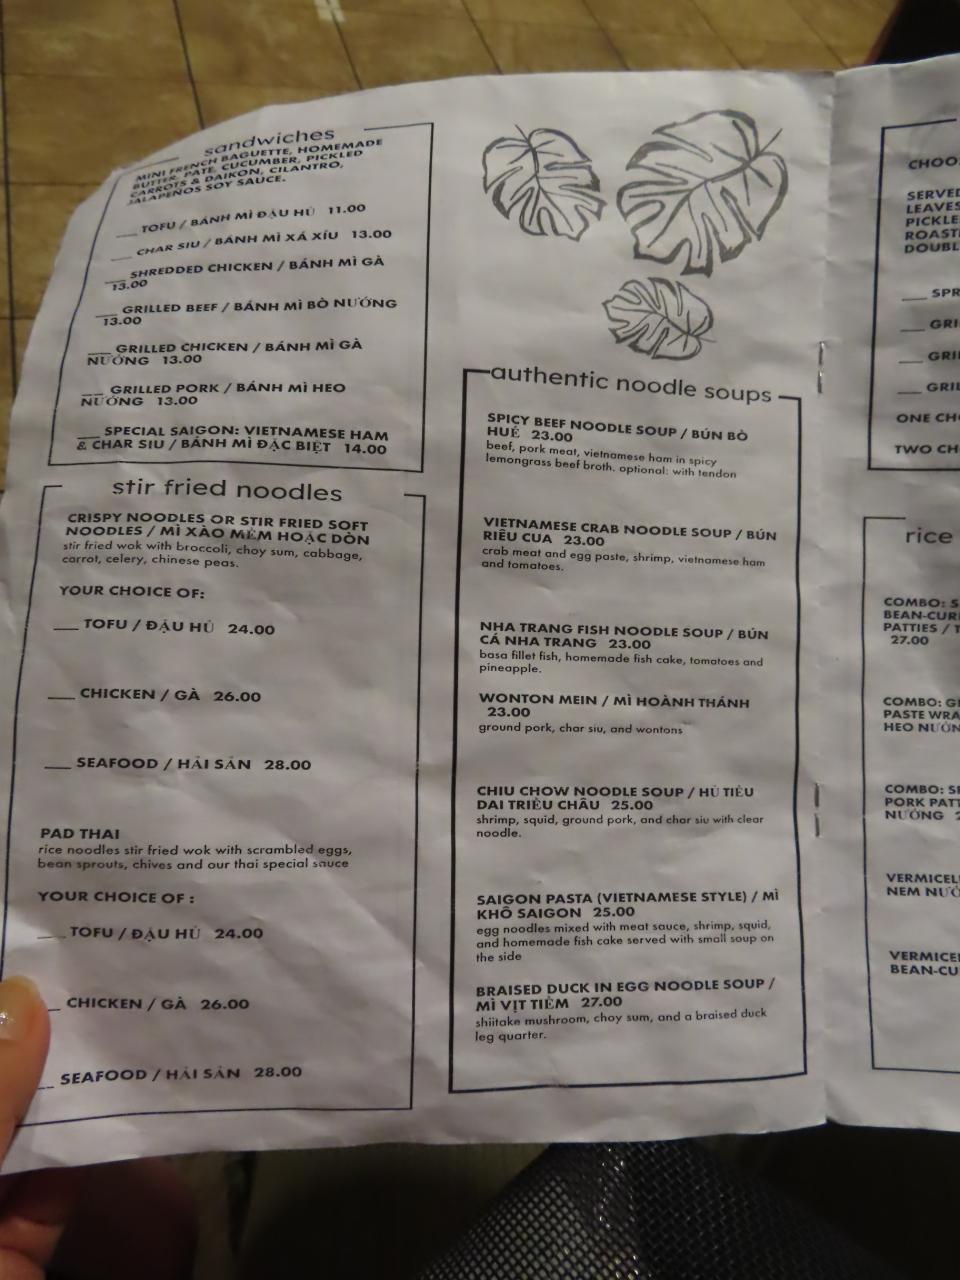 sandwiches
MINI FRENCH BAGUETTE, HOMEMADE
BUTTER, PATE, CUCUMBER, PICKLED
CARROTS & DAIKON, CILANTRO,
JALAPEÑOS SOY SAUCE.
___ TOFU / BÁNH MÌ ĐẬU HŨ 11.00
___ CHAR SIU / BÁNH MÌ XÁ XÍU 13.00
___ SHREDDED CHICKEN / BÁNH MÌ GÀ
13.00
___ GRILLED BEEF / BÁNH MÌ BÒ NƯỚNG
13.00
___ GRILLED CHICKEN / BÁNH MÌ GÀ
NƯỚNG 13.00
___ GRILLED PORK / BÁNH MÌ HEO
NƯỚNG 13.00
___ SPECIAL SAIGON: VIETNAMESE HAM
& CHAR SIU / BÁNH MÌ ĐẶC BIỆT 14.00
stir fried noodles
CRISPY NOODLES OR STIR FRIED SOFT
NOODLES / MÌ XÀO MỀM HOẶC DÒN
stir fried wok with broccoli, choy sum, cabbage,
carrot, celery, chinese peas.
YOUR CHOICE OF:
___ TOFU / ĐẬU HŨ 24.00
___ CHICKEN / GÀ 26.00
___ SEAFOOD / HẢI SẢN 28.00
PAD THAI
rice noodles stir fried wok with scrambled eggs,
bean sprouts, chives and our thai special sauce
YOUR CHOICE OF :
___ TOFU / ĐẬU HŨ 24.00
__ CHICKEN / GÀ 26.00
__ SEAFOOD / HẢI SẢN 28.00
authentic noodle soups
SPICY BEEF NOODLE SOUP / BÚN BÒ
HUẾ 23.00
beef, pork meat, vietnamese ham in spicy
lemongrass beef broth. optional: with tendon
VIETNAMESE CRAB NOODLE SOUP / BÚN
RIÊU CUA 23.00
crab meat and egg paste, shrimp, vietnamese ham
and tomatoes.
NHA TRANG FISH NOODLE SOUP / BÚN
CÁ NHA TRANG 23.00
basa fillet fish, homemade fish cake, tomatoes and
pineapple.
WONTON MEIN / MÌ HOÀNH THÁNH
23.00
ground pork, char siu, and wontons
CHIU CHOW NOODLE SOUP / HỦ TIẾU
DAI TRIỀU CHÂU 25.00
shrimp, squid, ground pork, and char siu with clear
noodle.
SAIGON PASTA (VIETNAMESE STYLE) / MÌ
KHÔ SAIGON 25.00
egg noodles mixed with meat sauce, shrimp, squid,
and homemade fish cake served with small soup on
the side
BRAISED DUCK IN EGG NOODLE SOUP /
MÌ VỊT TIỀM 27.00
shiitake mushroom, choy sum, and a braised duck
leg quarter.
CHOO
SERVED
LEAVES
PICKLE
ROAST
DOUBL
___ SPR
___ GRI
___ GRIL
___ GRIL
ONE CH
TWO CH
rice
COMBO: S
BEAN-CUR
PATTIES / T
27.00
COMBO: G
PASTE WRA
HEO NƯỚN
COMBO: S
PORK PATT
NƯỚNG 2
VERMICEL
NEM NƯỚ
VERMICE
BEAN-CU